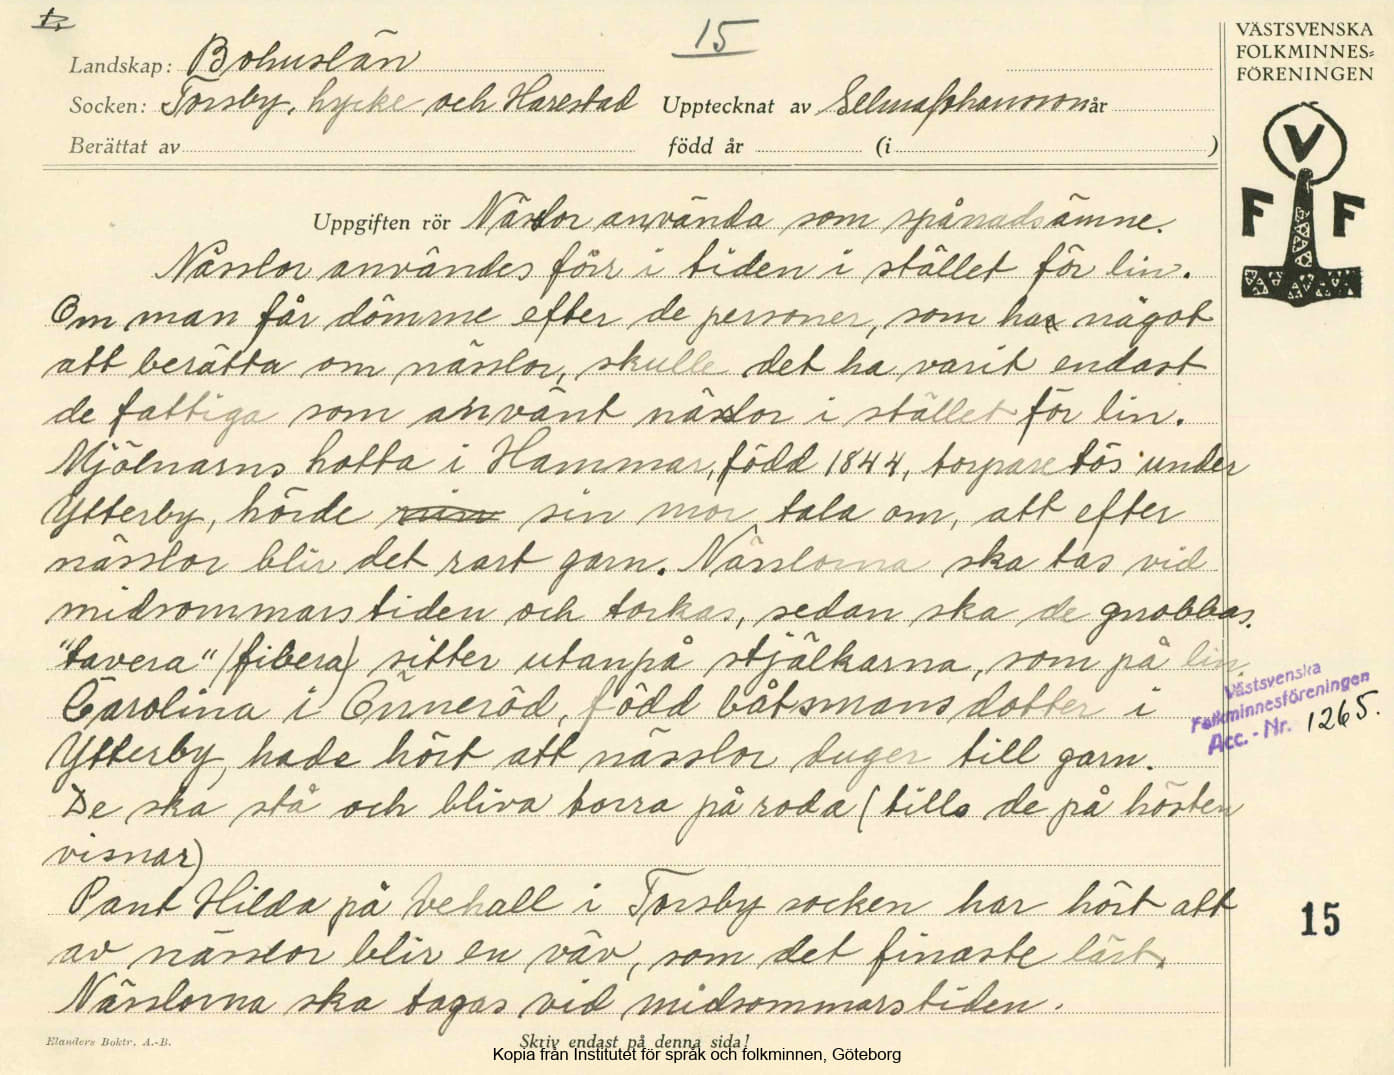 15
VÄSTSVENSKA
FOLKMINNES=
FÖRENINGEN
Landskap: Bohuslän
Socken: Torsby, Lycke och Harestad Upptecknat av Selma Johansson år
Berättat av född år (i )
V
F F
Uppgiften rör Nässlor använda som spånadsämne.
Nässlor användes förr i tiden i stället för lin.
Om man får dömme efter de personer, som har något
att berätta om nässlor, skulle det ha varit endast
de fattiga som använt nässlor i stället för lin.
Mjölnarns Lotta i Hammar, född 1844, torpare tös under
Ytterby, hörde sin mor tala om, att efter
nässlor blir det rart garn. Nässlorna ska tas vid
midsommarstiden och torkas, sedan ska de gnobbas.
"tavera" (fibera) sitter utanpå stjälkarna, som på lin.
Carolina i Önneröd, född båtsmansdotter i
Ytterby, hade hört att nässlor duger till garn.
De ska stå och bliva torra på roda (tills de på hösten
visnar)
Pant Hilda på Vehall i Torsby socken har hört att
av nässlor blir en väv, som det finaste lärt.
Nässlorna ska tagas vid midsommarstiden.
Västsvenska
Folkminnesföreningen
Acc. - Nr. 1265.
15
Elanders Boktr. A.-B.
Skriv endast på denna sida!
Kopia från Institutet för språk och folkminnen, Göteborg